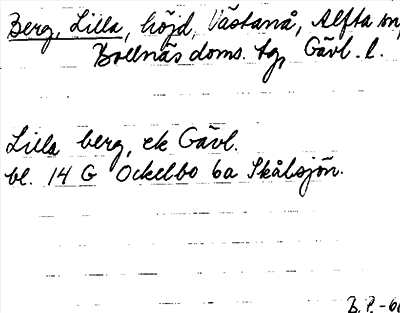 Berg, Lilla, höjd, Västanå, Alfta sn,
Bollnäs doms. tg, Gävl. l.
Lilla berg, ek Gävl.
bl. 14 G Ockelbo 6a Skålsjön.
B.P.-60